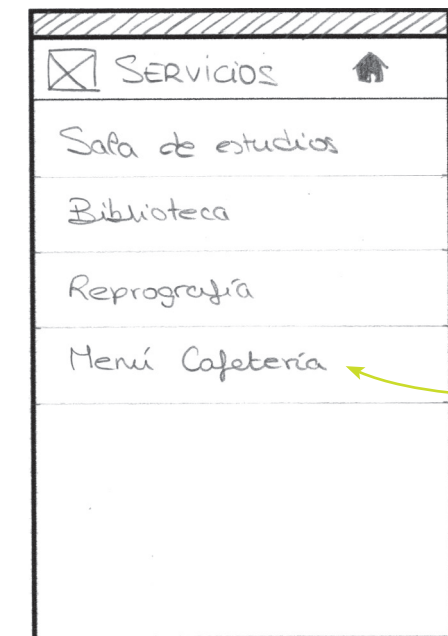 SERVICIOS
Sala de estudios
Biblioteca
Reprografía
Menú Cafetería